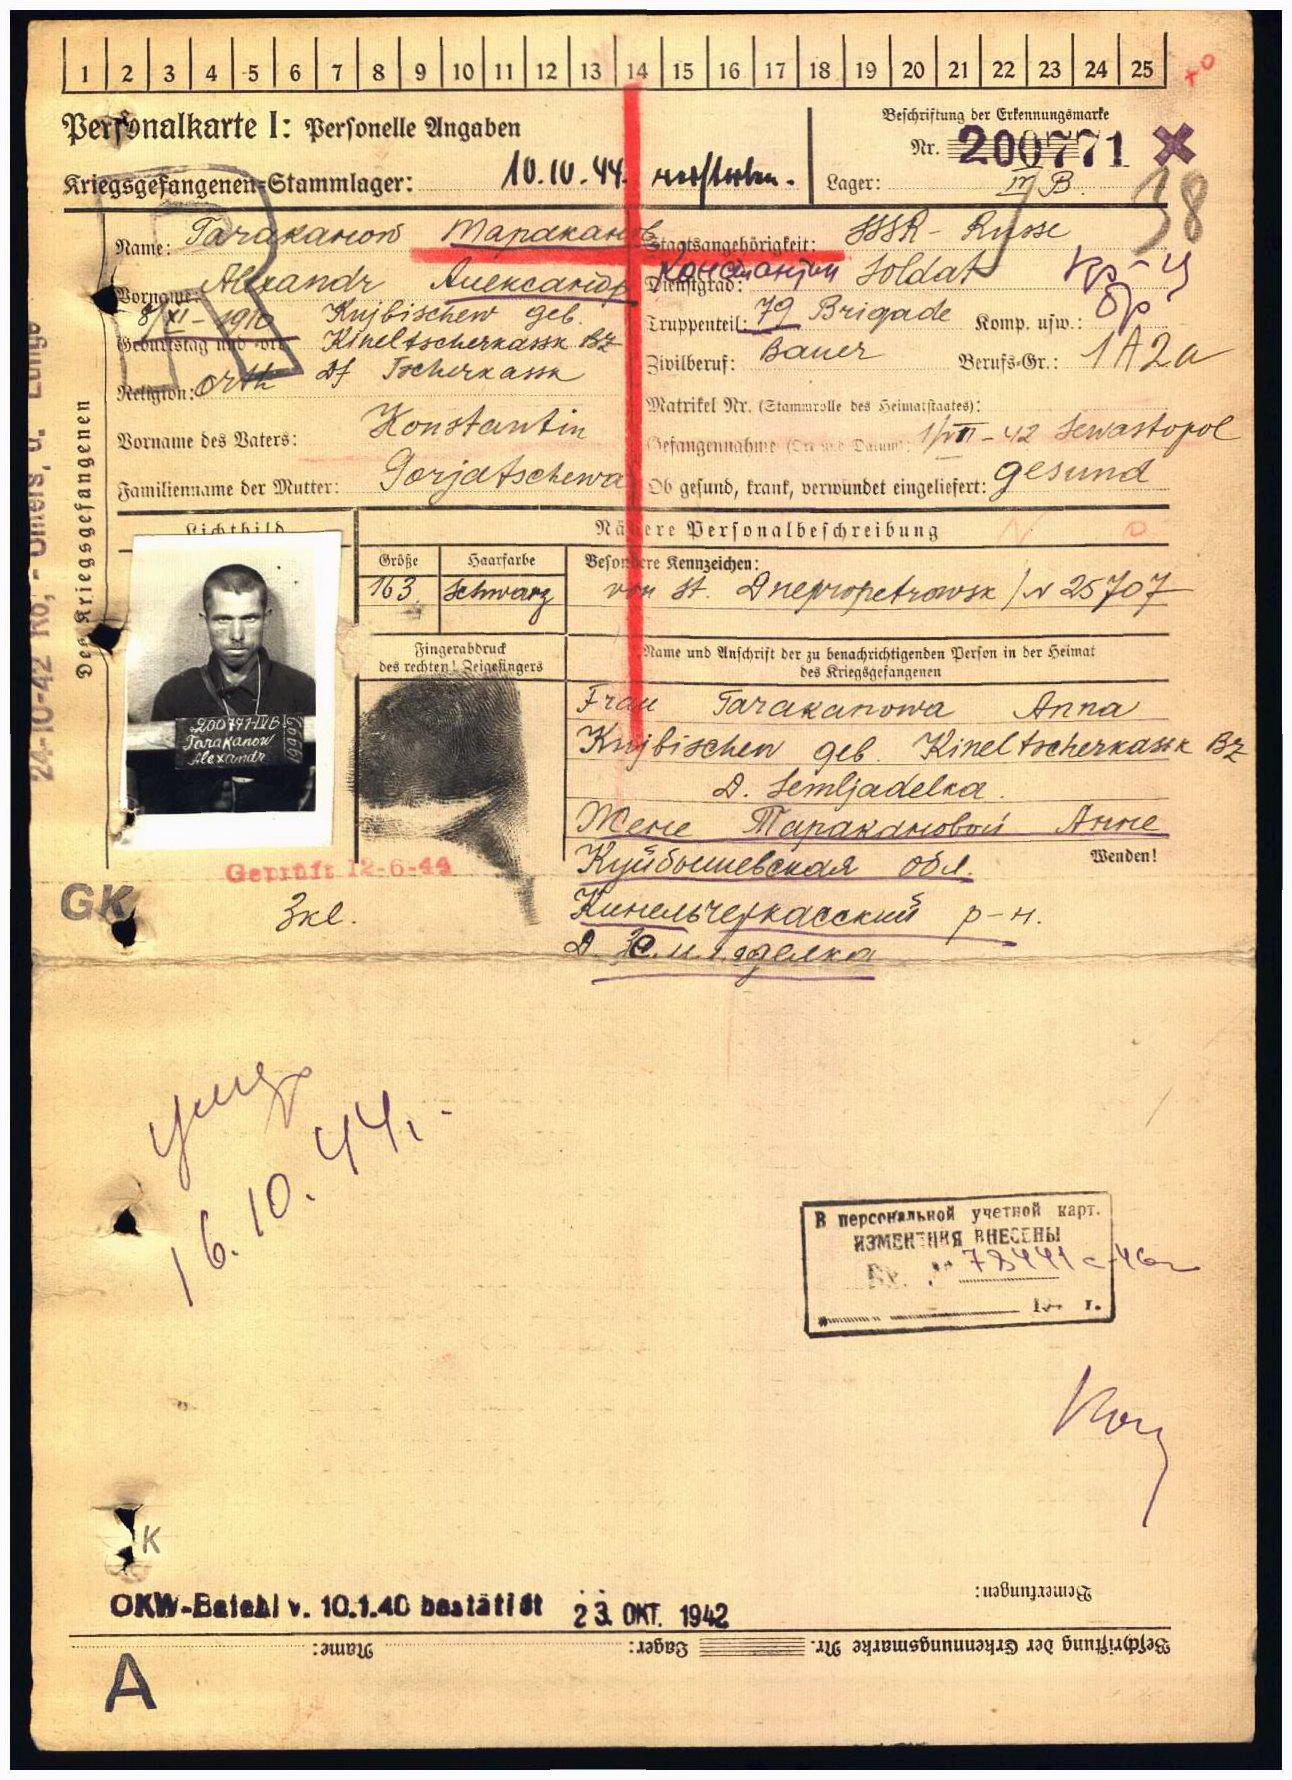 1 2 3 4 5 6 7 8 9 10 11 12 13 14 15 16 17 18 19 20 21 22 23 24 25
Personalkarte I: Personelle Angaben
Beschriftung der Erkennungsmarke
Nr. 200771
Kriegsgefangenen-Stammlager: 10.10.44. verstorben.
Lager: IV B.
38
Name: Tarakanow Тараканов
Staatsangehörigkeit: SSSR - Russe
Vorname: Alexandr Александр Константин
Dienstgrad: Soldat
кр-ц
8/XI-1910 Kujbischew geb.
Truppenteil: 79 Brigade Komp. usw.: бр
Geburtstag und -ort: Kineltscherkassk Bz
Zivilberuf: Bauer Berufs-Gr.: 1A2a
Religion: orth Df Tscherkassk
Matrikel Nr. (Stammrolle des Heimatstaates):
Vorname des Vaters: Konstantin
Gefangennahme (Ort und Datum): 1/VII-42 Sewastopol
Familienname der Mutter: Gorjatschewa
Ob gesund, krank, verwundet eingeliefert: gesund
Des Kriegsgefangenen
24-10-42
Lichtbild
Nähere Personalbeschreibung
Größe Haarfarbe Besondere Kennzeichen:
163 Schwarz von St. Dnepropetrowsk / N 25707
Fingerabdruck
des rechten! Zeigefingers
Name und Anschrift der zu benachrichtigenden Person in der Heimat
des Kriegsgefangenen
200771-IVB
Tarakanow
Alexandr
Frau Tarakanowa Anna
Kujbischew geb. Kineltscherkassk Bz
D. Semljadelka.
Жене Таракановой Анне
Куйбышевская обл.
Wenden!
Кинельчеркасский р-н.
Geprüft 12-6-44
GK
16.10.44г.
В персональной учетной карт.
ИЗМЕНЕНИЯ ВНЕСЕНЫ
K
OKW-Befehl v. 10.1.40 bestätigt 23. OKT. 1942
Bemerkungen:
Beschriftung der Erkennungsmarke Nr. Lager: Name:
A